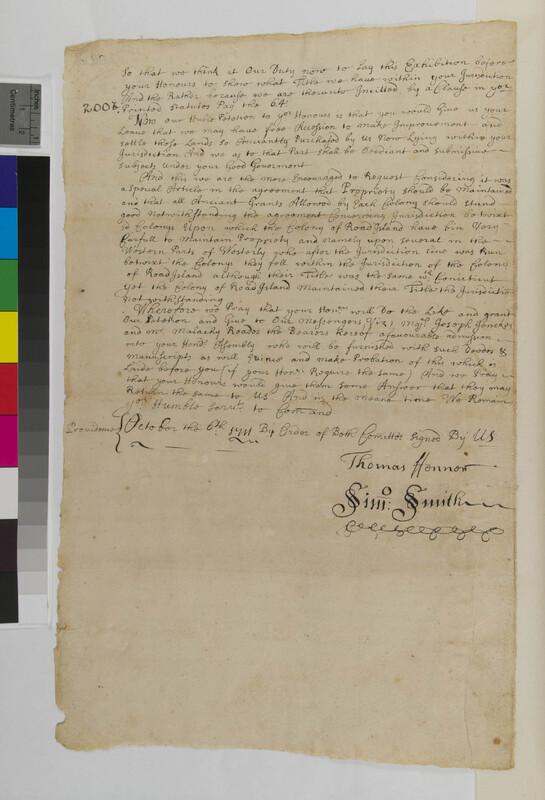 So that we think it Our Duty now to Lay this Exhibition before
your Honours to Show what Title we have within your Jurisdiction
And the Rather because we are thereunto Incited by a Clause in yor
200b Printed Statutes Pag the 64
Now our humble Petition to yor Honours is that you would Give us your
Leave that we may have free Accession to make Improuement and
settle those Lands so Antiantly Purchased by Us Now Lying within your
Jurisdiction And we as to that Part shall be Obediant and submissiue
Subjects under your Good Goverment
And this we are the more Encouraged to Request Considering it was
a Special Article in the agreement that Propriety should be Maintained
and that all Ancient Grants Allowed by Each Colony should stand
good Notwithstanding the agreement Concerning Jurisdiction betwixt
sd Colonys Upon which the Colony of Road Island have bin Very
Carfull to Maintain Propriety and namely upon several in the
Western Parts of Westerly who after the Jurisdiction Line was Run
betwixt the Colonys they fell within the Jurisdiction of the Colony
of Road Island although their Title was the same wth Conecticut
yet the Colony of Road Island Maintained their Title the Jurisdiction
Notwithstanding
Wherefore we Pray that your Honrs will Do the Like and grant
Our Petition and Give to Our Messengers Viz) Majr Joseph Jenckes
and mr Malachy Roades the Bearers hereof a favourable admission
into your Hond Assembly who will be furnished with such Deeds &
manuscripts as will and make Probation of this which is
Laide before you (if your Honrs Require the same) And we Pray
that your Honours would give them some Answer that they may
Return the same to Us And in the meane time We Remain
yor Humble Servts to Com and
Providence October the 6th 1711 By Order of Both Comittes Signed By US
Thomas Fennor
Simo: Smith